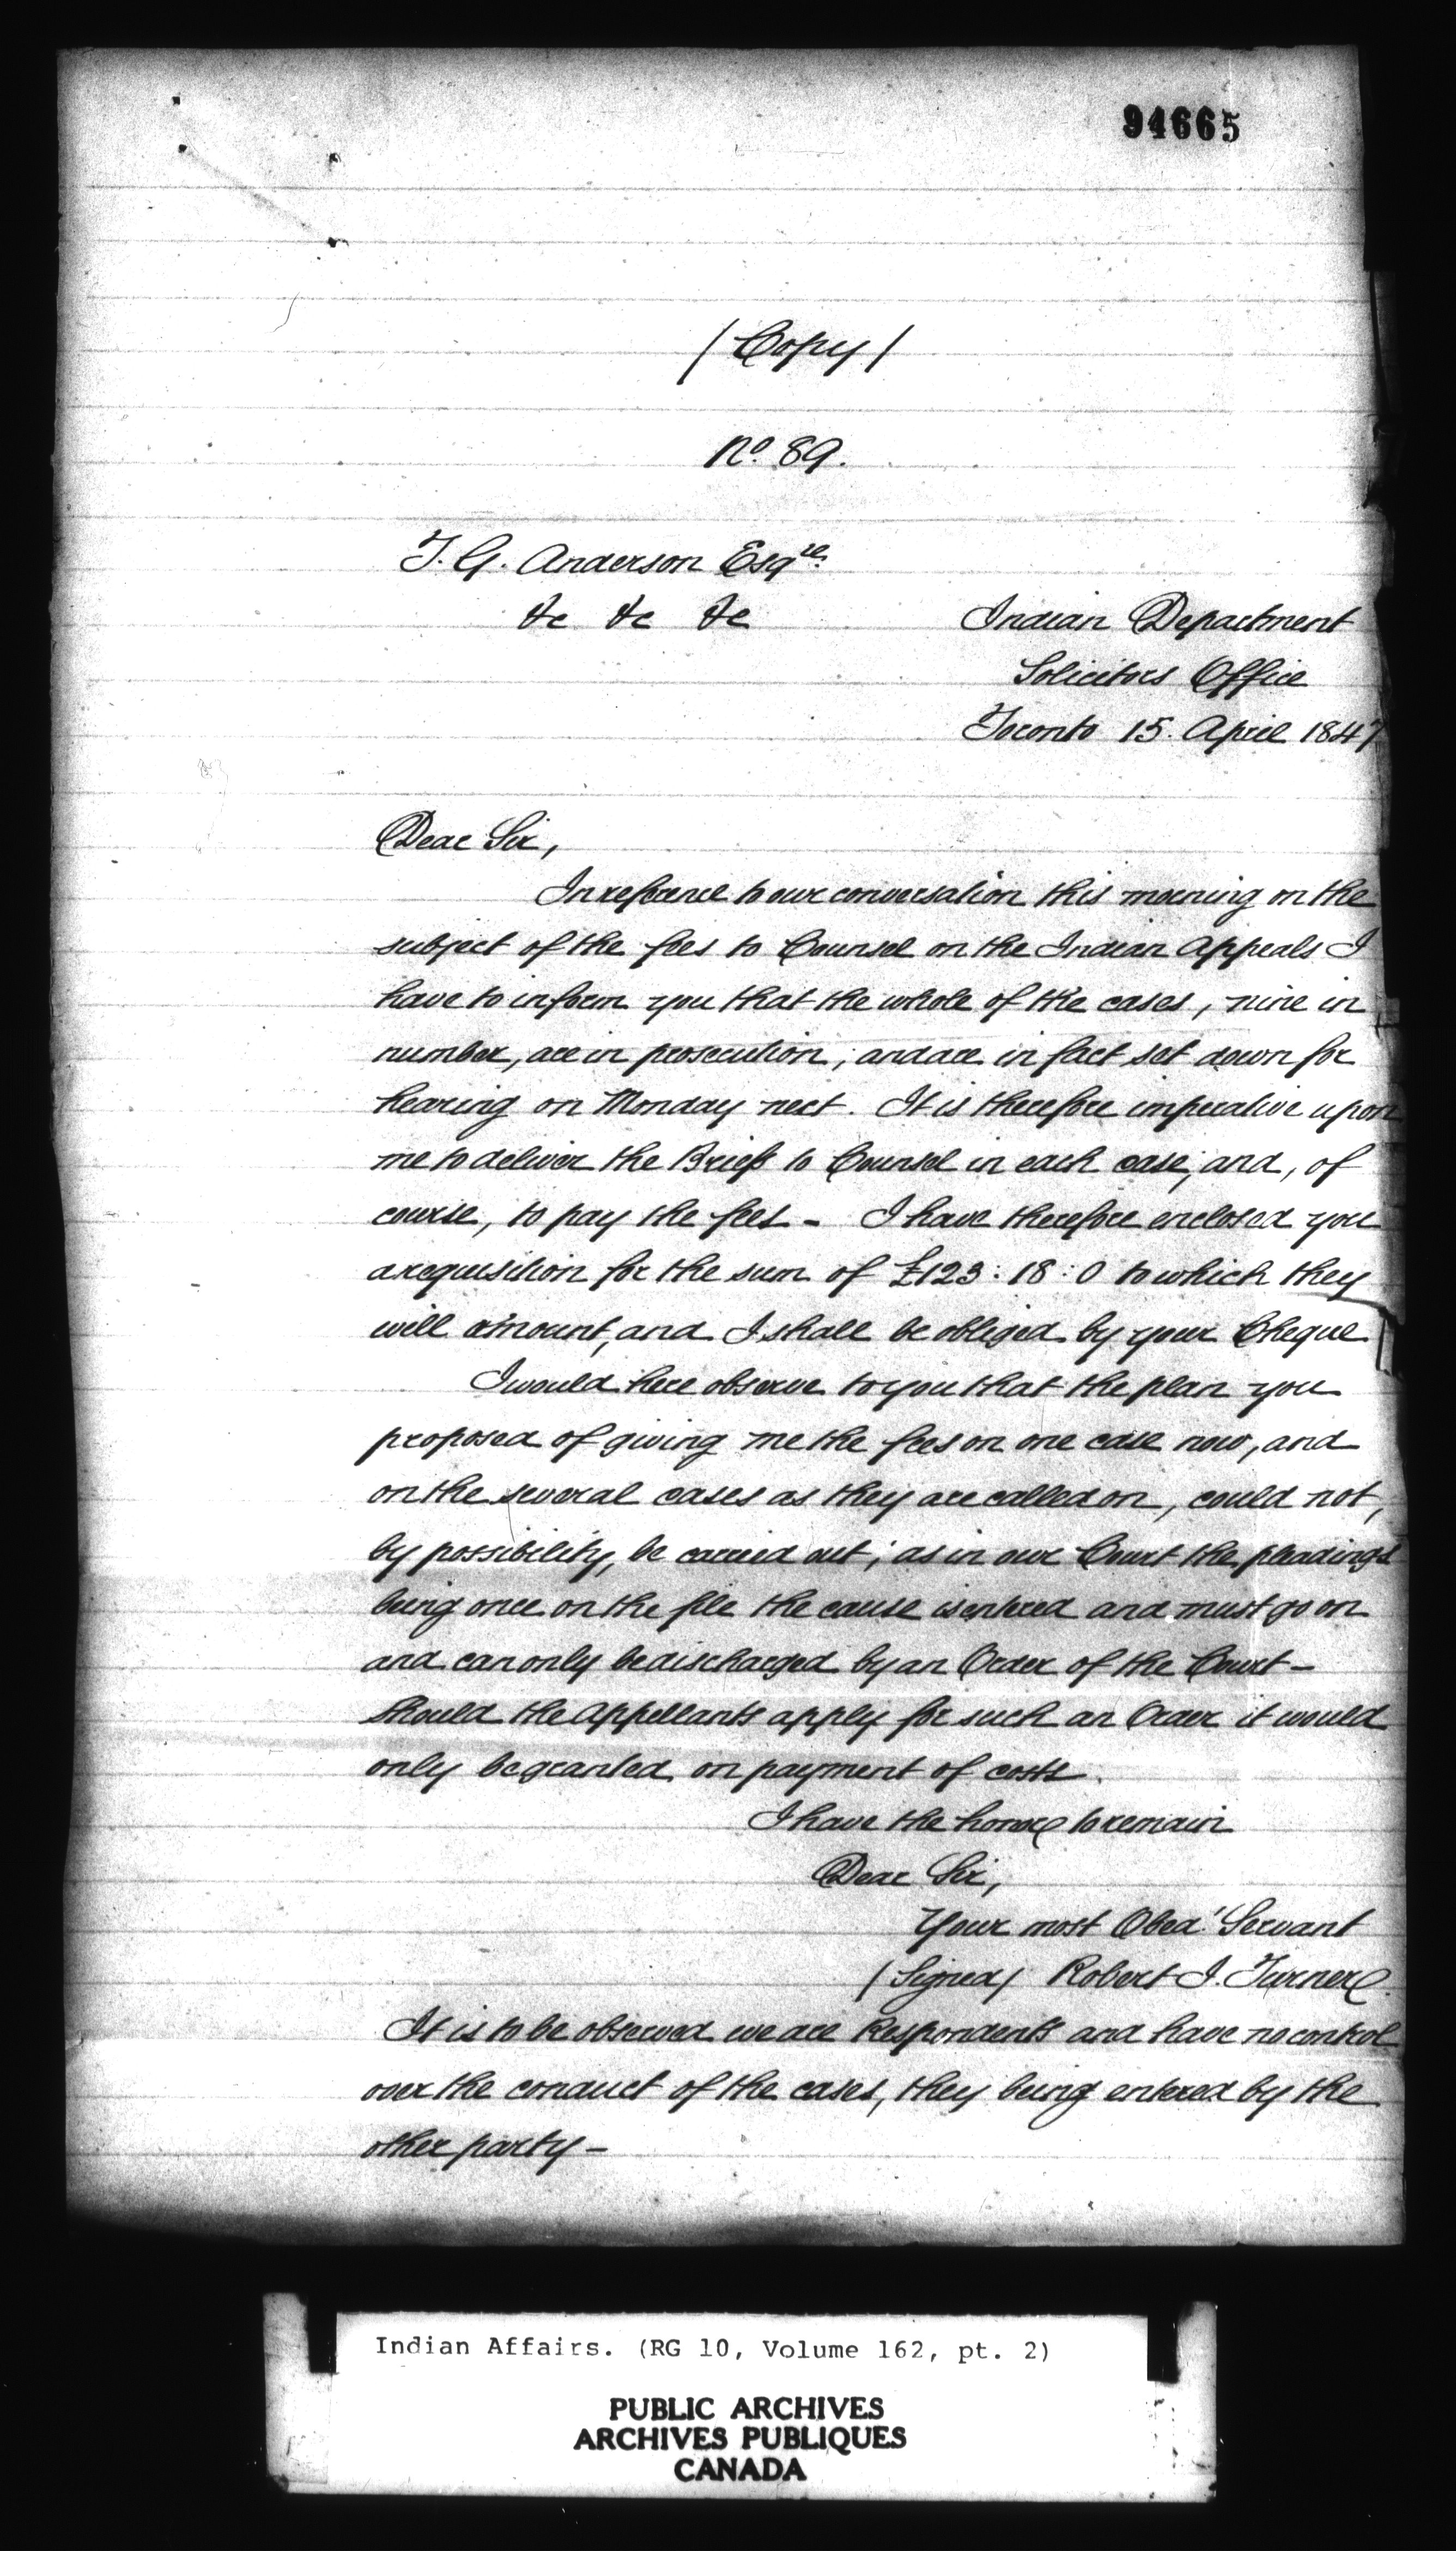 94665
/Copy/
No. 89.
T. G. Anderson Esqre.
&c &c &c
Indian Department
Solicitors Office
Toronto 15. April 1847
Dear Sir,
In reference to our conversation this morning on the
subject of the fees to Counsel on the Indian Appeals I
have to inform you that the whole of the cases, nine in
number, are in prosecution; and are in fact set down for
hearing on Monday next. It is therefore imperative upon
me to deliver the Briefs to Counsel in each case, and, of
course, to pay the fees - I have therefore enclosed you
a requisition for the sum of £123:18:0 to which they
will amount, and I shall be obliged by your Cheque
I would here observe to you that the plan you
proposed of giving me the fees on one case now, and
on the several cases as they are called on, could not,
by possibility, be carried out; as in our Court the pleadings
being once on the file the cause is entered and must go on
and can only be discharged by an Order of the Court -
Should the Appellants apply for such an Order it would
only be granted on payment of costs.
I have the honor to remain
Dear Sir,
Your most Obedt Servant
/Signed/ Robert J. Turner.
It is to be observed we are Respondents and have no control
over the conduct of the cases, they being entered by the
other party -
Indian Affairs. (RG 10, Volume 162, pt. 2)
PUBLIC ARCHIVES
ARCHIVES PUBLIQUES
CANADA